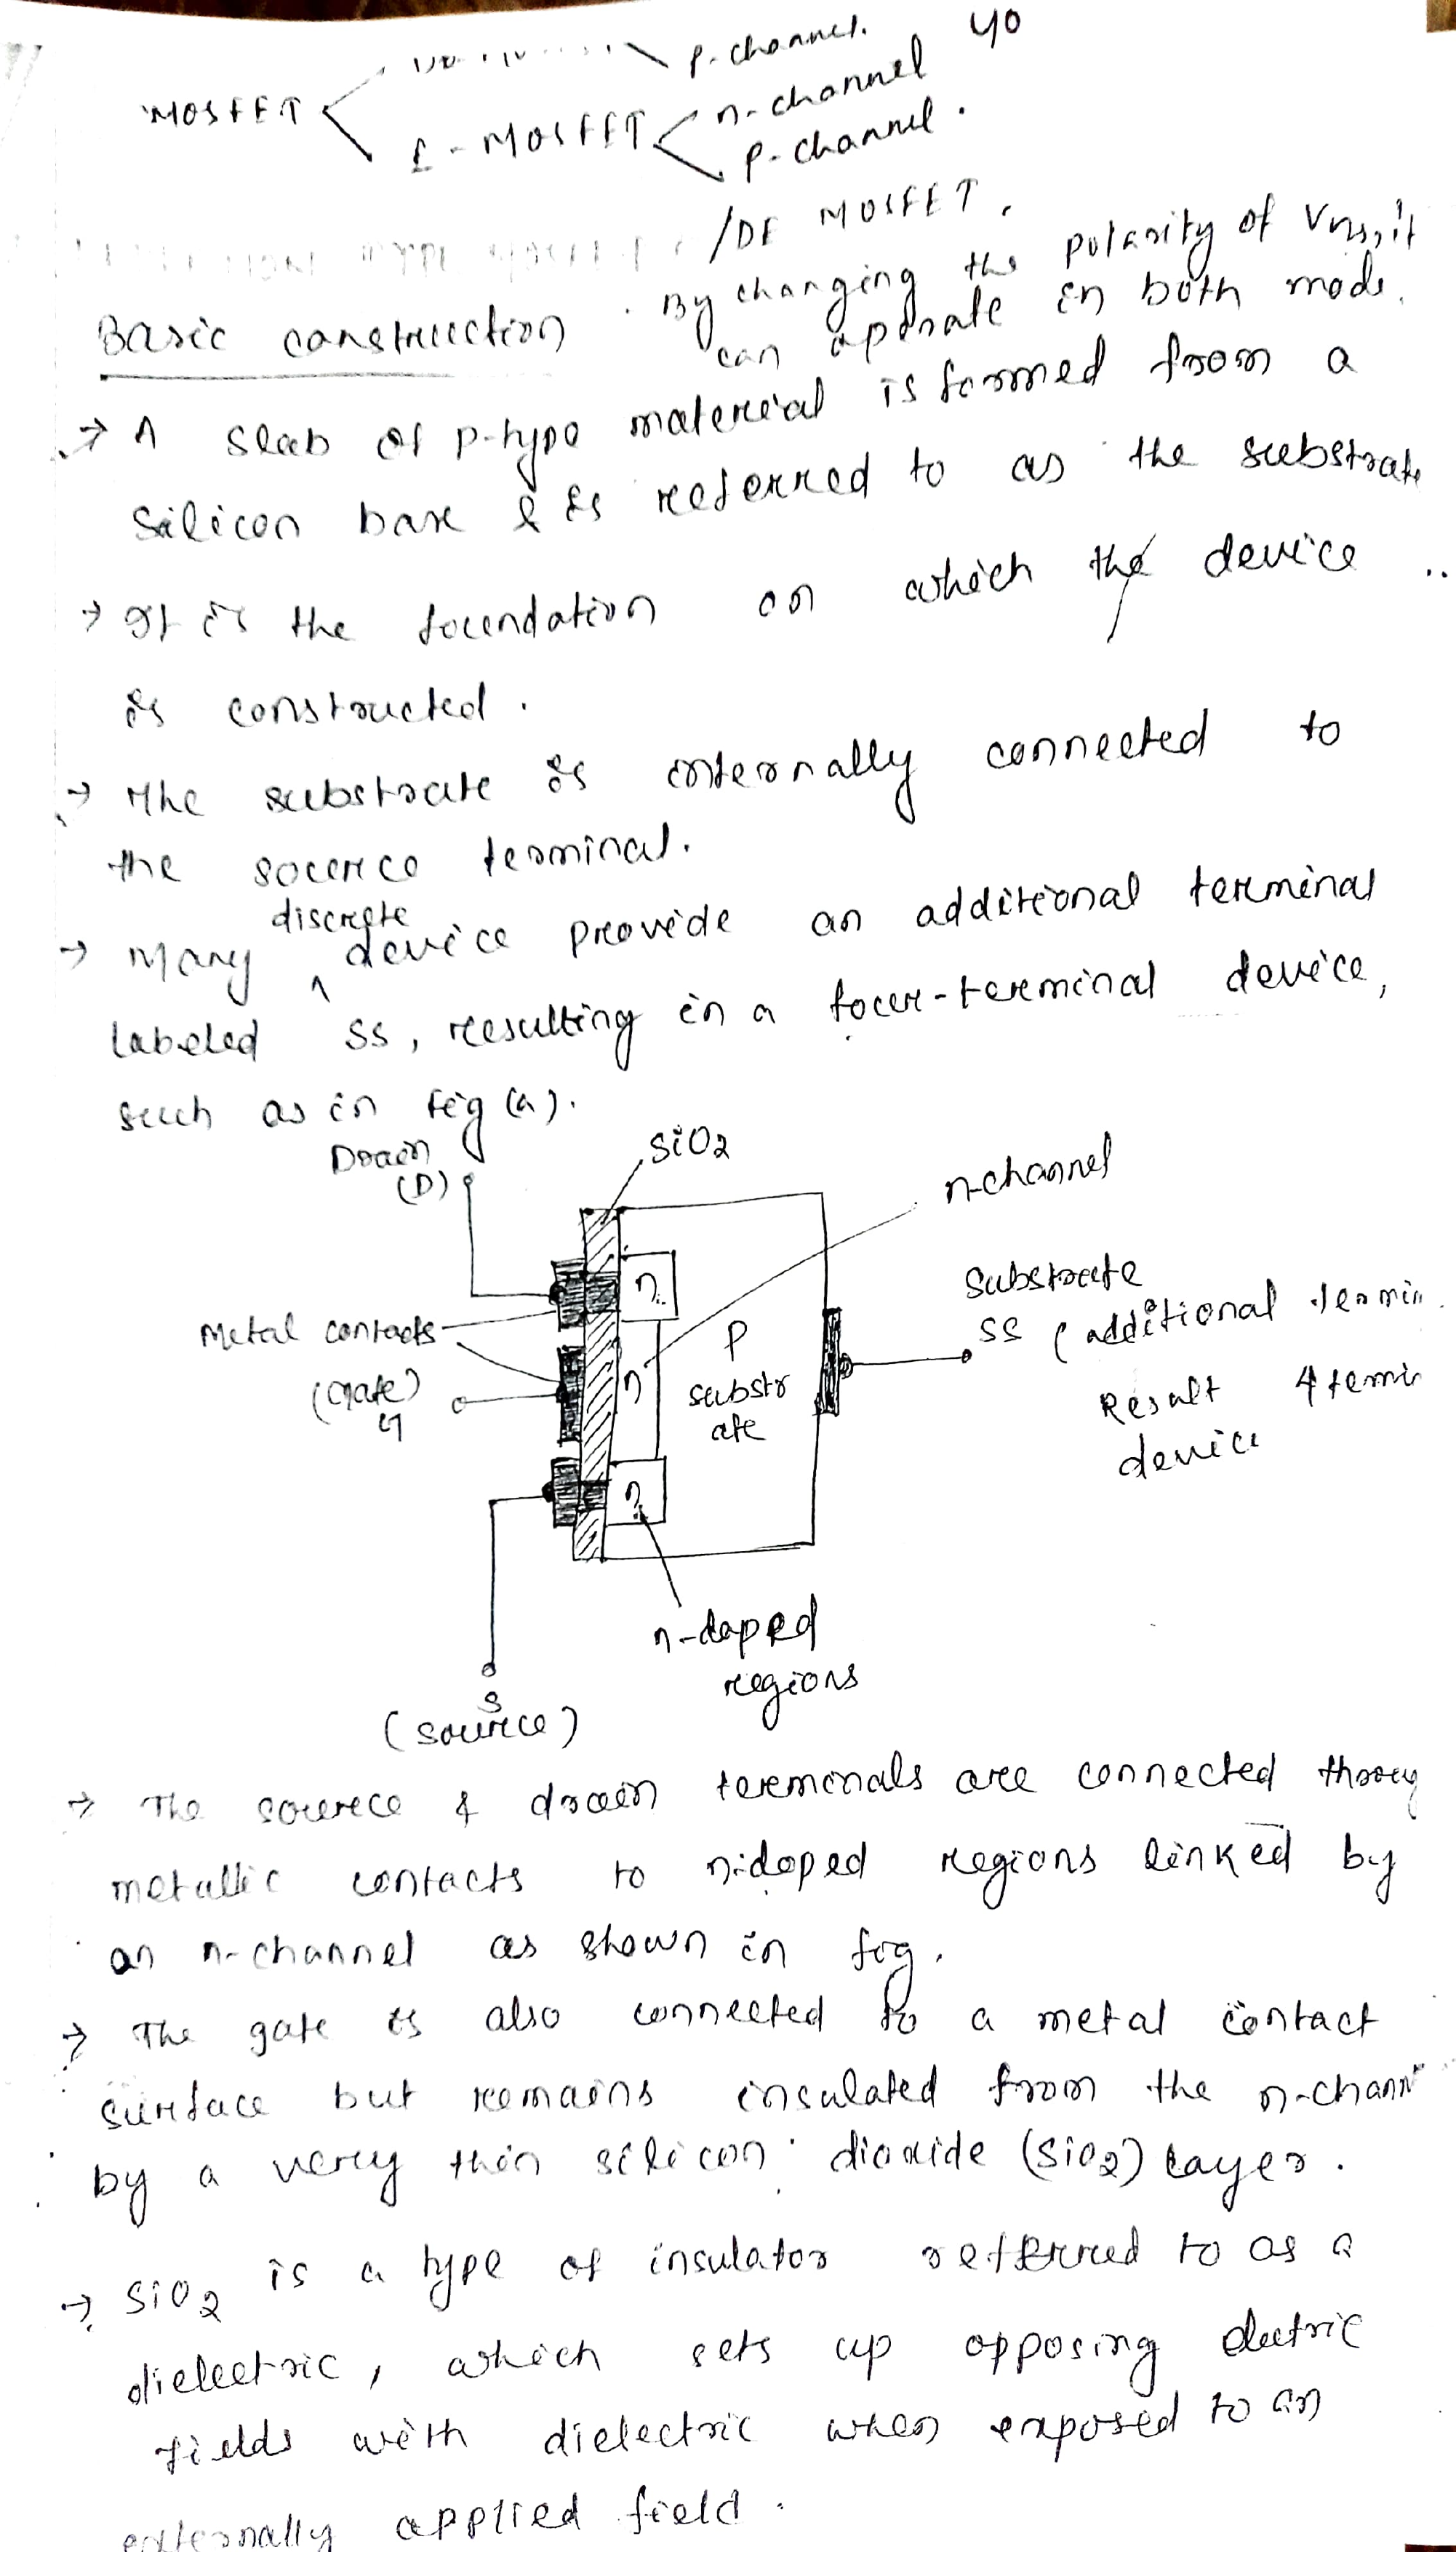 40
p-channel.
MOSFET
n-channel
E-MOSFET
p-channel.
/DE MOSFET.
By changing the polarity of VGS, it
can operate in both mode.
Basic construction
→ A slab of p-type material is formed from a
silicon base & is referred to as the substrate
→ It is the foundation on which the device
is constructed.
→ The substrate is internally connected to
the source terminal.
discrete
→ Many ^ device provide an additional terminal
labeled SS, resulting in a four-terminal device,
such as in fig (a).
Drain
(D)
SiO2
n-channel
n
Metal contacts
(Gate)
G
n
P
substr
ate
Substrate
SS (additional termin
Result 4 termin
device
n
n-doped
regions
S
(source)
→ The source & drain terminals are connected throug
metallic contacts to n-doped regions linked by
an n-channel as shown in fig.
→ The gate is also connected to a metal contact
surface but remains insulated from the n-chann
by a very thin silicon dioxide (SiO2) layer.
→ SiO2 is a type of insulator referred to as a
dielectric, which sets up opposing electric
fields with dielectric when exposed to an
externally applied field.